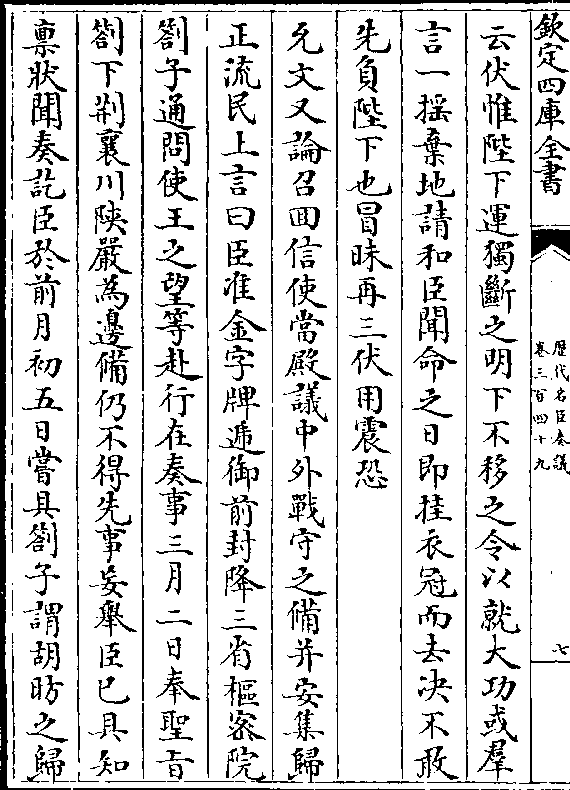 欽定四庫全書
歴代名臣奏議
卷三百四十九
七
云伏惟陛下運獨斷之明下不移之令以就大功或羣
言一揺棄地請和臣聞命之日即挂衣冠而去决不敢
先負陛下也冒昧再三伏用震恐
允文又論召回信使當殿議中外戰守之備并安集歸
正流民上言曰臣准金字牌遞御前封降三省樞密院
劄子通問使王之望等赴行在奏事三月二日奉聖旨
劄下荆襄川陜嚴為邊備仍不得先事妄舉臣已具知
禀狀聞奏訖臣於前月初五日嘗具劄子謂胡昉之歸